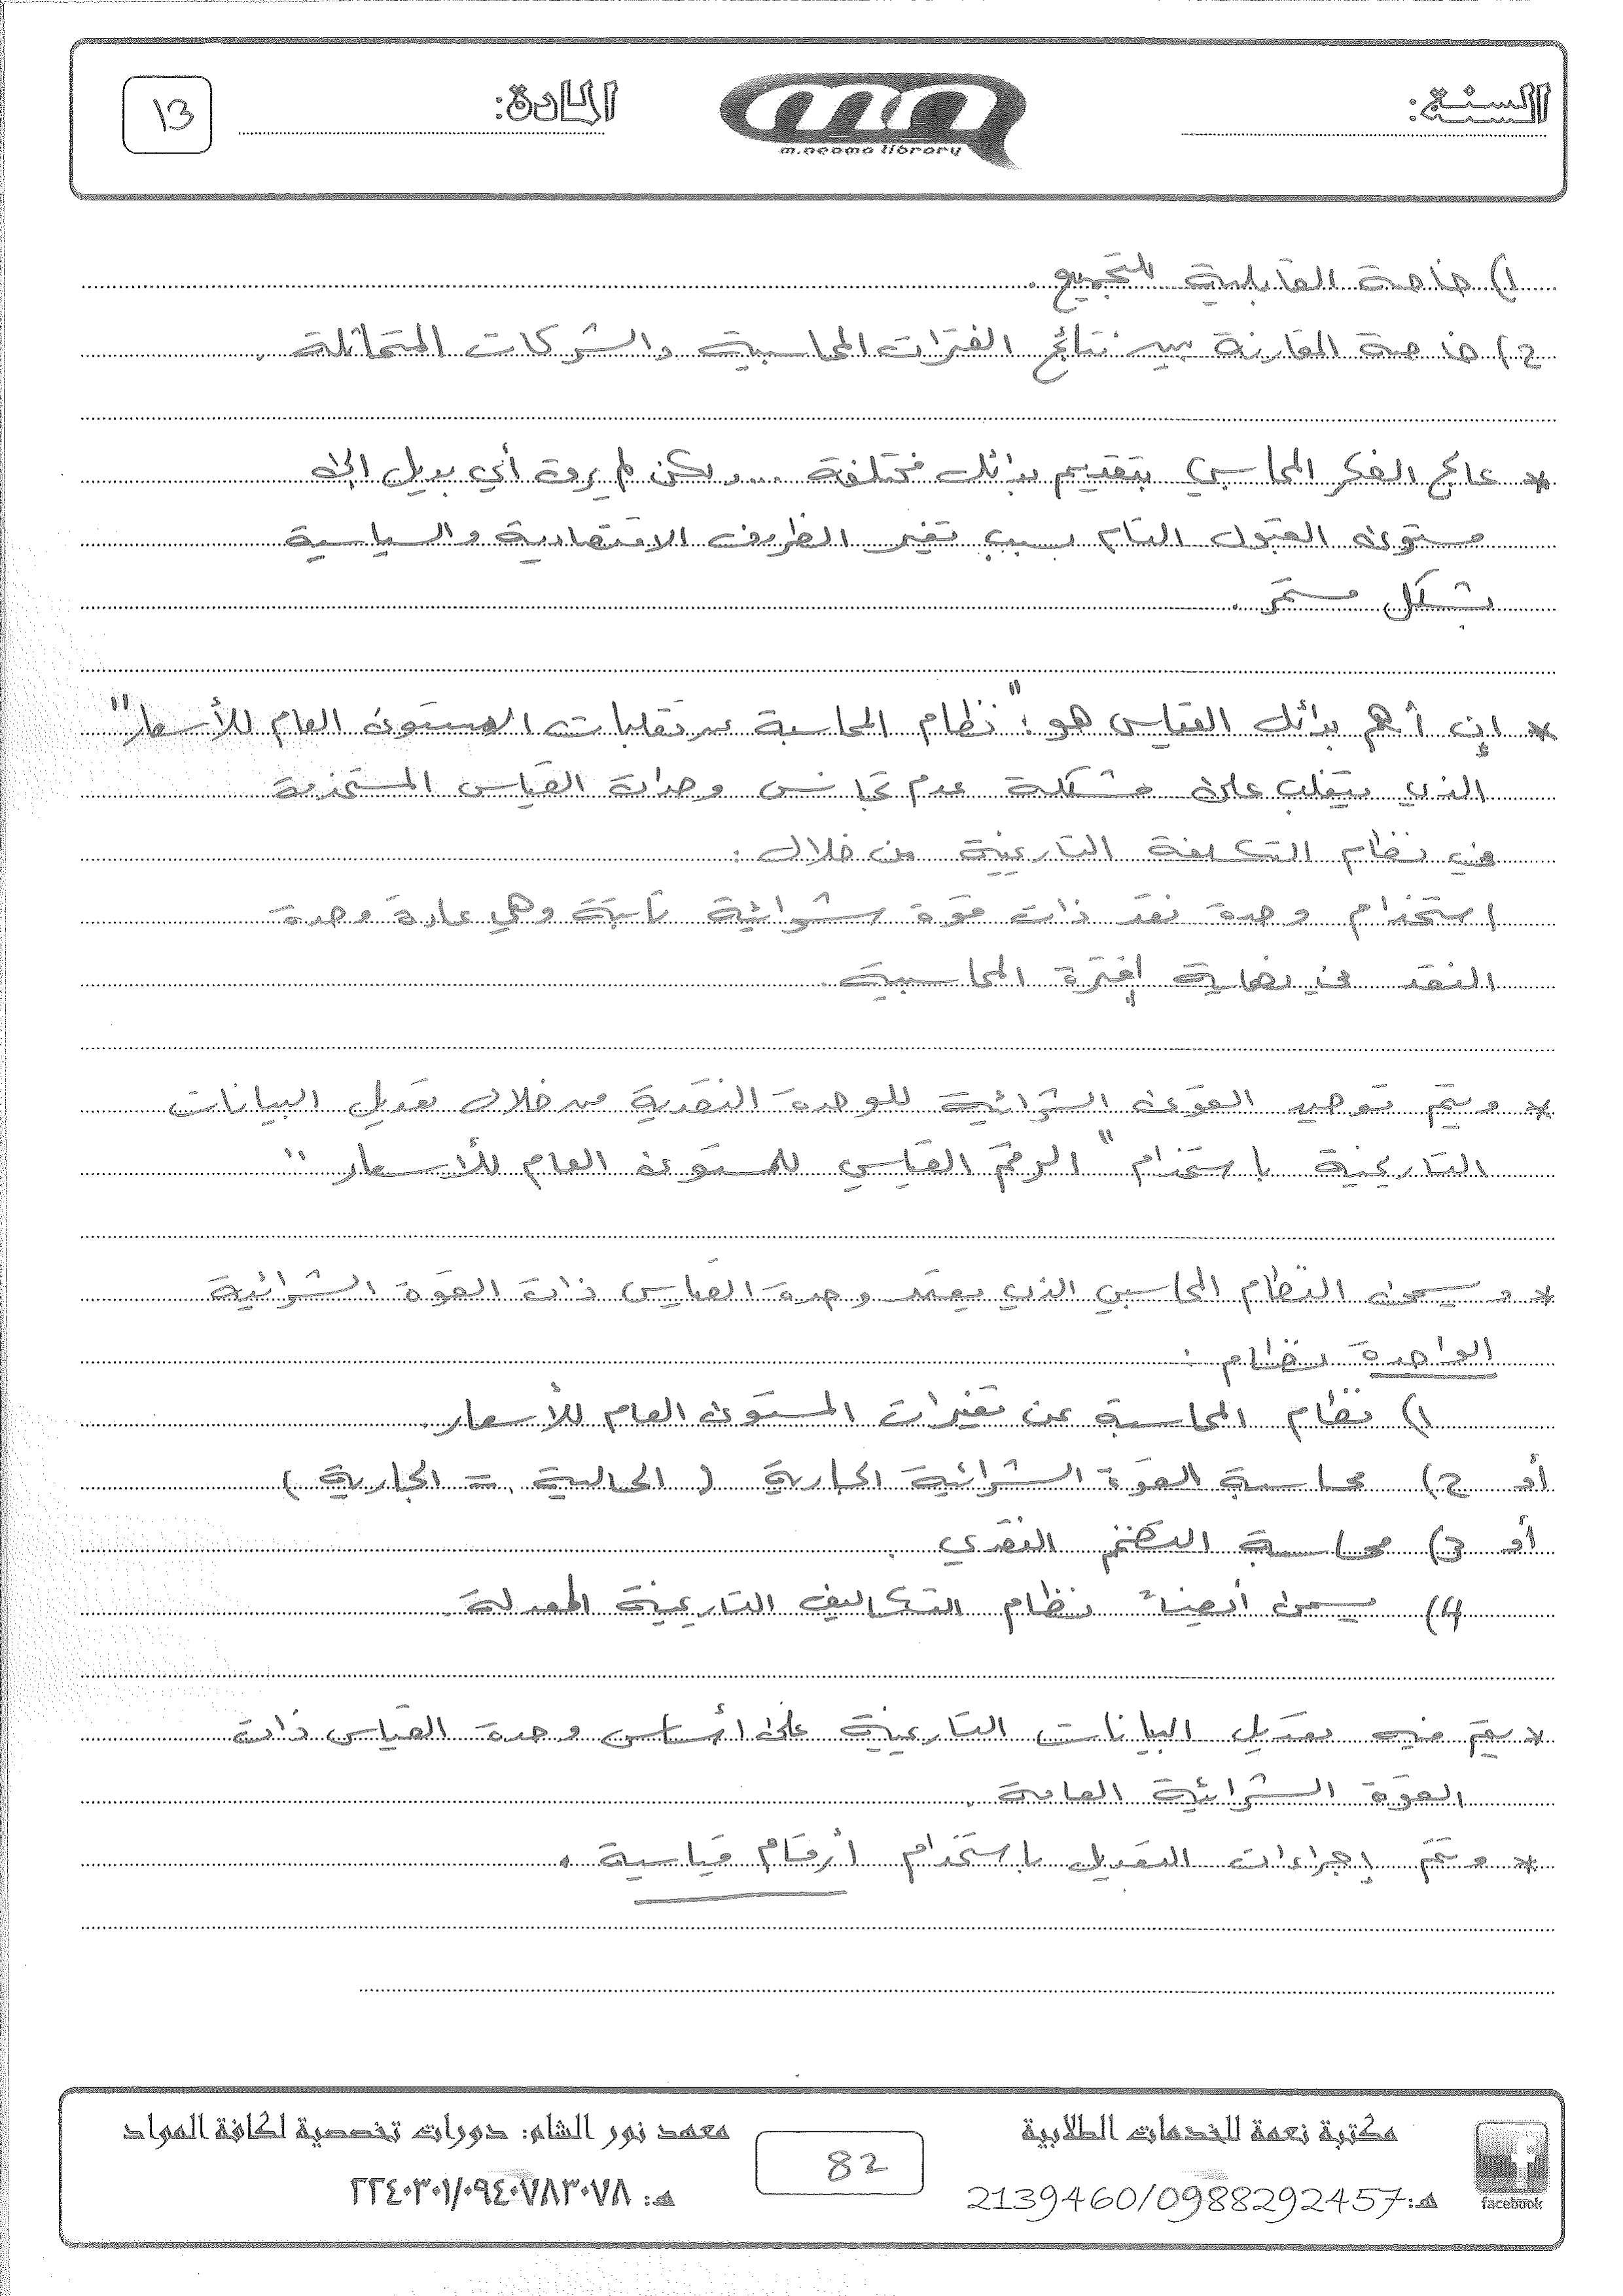 السنة:
المادة:
13
m.neoma library
1) خاصة القابلية للتجميع.
2) خاصة المقارنة بين نتائج الفترات المحاسبية والشركات المتماثلة.
* عالج الفكر المحاسبي بتقديم بدائل مختلفة ... ولكن لم يروَ أي بديل إلى
مستوى القبول التام بسبب تغير الظروف الاقتصادية والسياسية
بشكل مستمر.
* إن أهم بدائل القياس هو: "نظام المحاسبة عن تقلبات المستوى العام للأسعار"
الذي يتغلب على مشكلة عدم تجانس وحدات القياس المستخدمة
في نظام التكلفة التاريخية من خلال:
استخدام وحدة نقد ذات قوة شرائية ثابتة وهي عادة وحدة
النقد في نهاية الفترة المحاسبية.
* ويتم توحيد القوى الشرائية للوحدة النقدية من خلال تعديل البيانات
التاريخية باستخدام "الرقم القياسي للمستوى العام للأسعار"
* ويسمى النظام المحاسبي الذي يعتمد وحدة القياس ذات القوة الشرائية
الواحدة نظام:
1) نظام المحاسبة عن تغيرات المستوى العام للأسعار.
أو 2) محاسبة القوة الشرائية الجارية (الحالية = الجارية)
أو 3) محاسبة التضخم النقدي.
4) يسمى أيضاً نظام التكاليف التاريخية المعدلة.
* يتم فيه تعديل البيانات التاريخية على أساس وحدة القياس ذات
القوة الشرائية العامة.
* وتتم إجراءات التعديل باستخدام أرقام قياسية.
مكتبة نعمة للخدمات الطلابية
هـ: 2139460/0988292457
82
معهد نور الشام: دورات تخصصية لكافة المواد
هـ: ٢٢٤٠٣٠١/٠٩٤٠٧٨٣٠٧٨
facebook